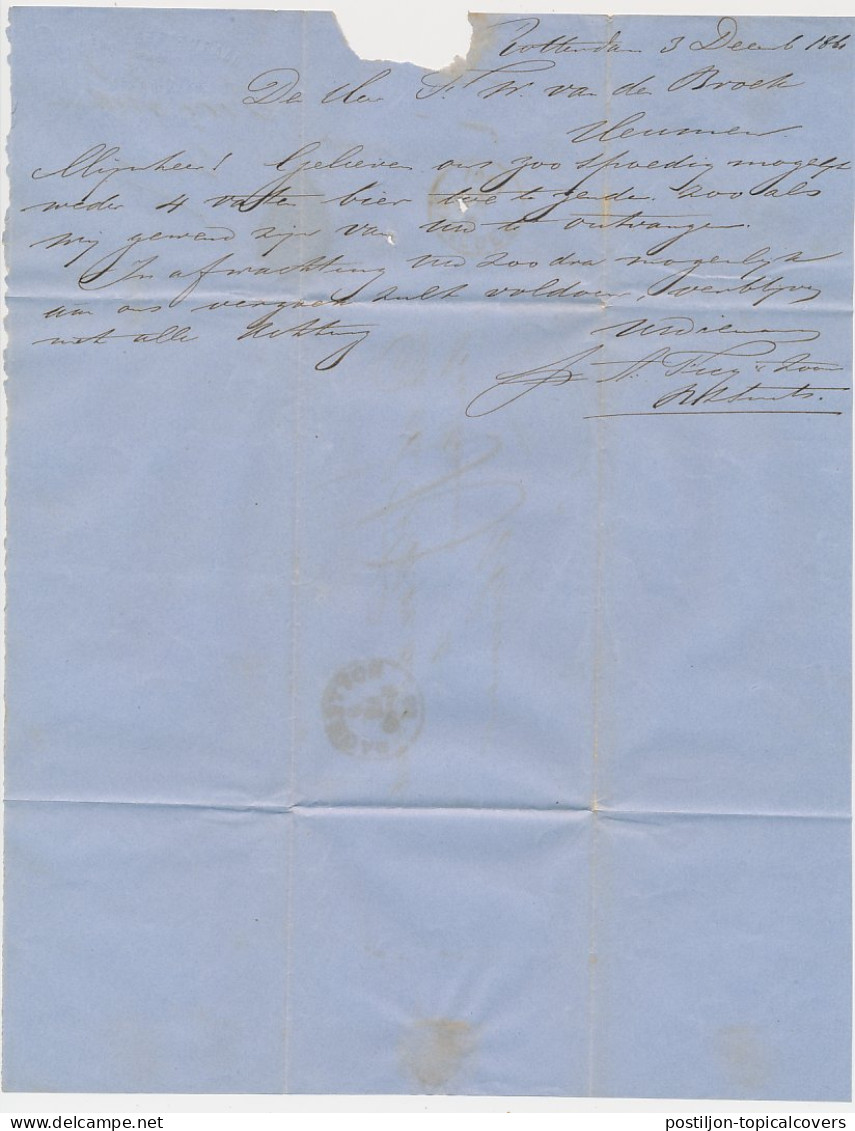 Rotterdam 3 Decemb 186
De Heer F. W. van den Broek
Heumen
Mijnheer! Gelieve ons zoo spoedig mogelyk
weder 4 vaten bier toe te zenden. zoo als
wij gewend zijn van UEd te ontvangen.
In afwachting UEd zoodra mogenlijk
aan ons verzoek zult voldoen, verblijven
met alle Achting UEdienaren
A. Frey & Zoon
postiljon-topicalcovers